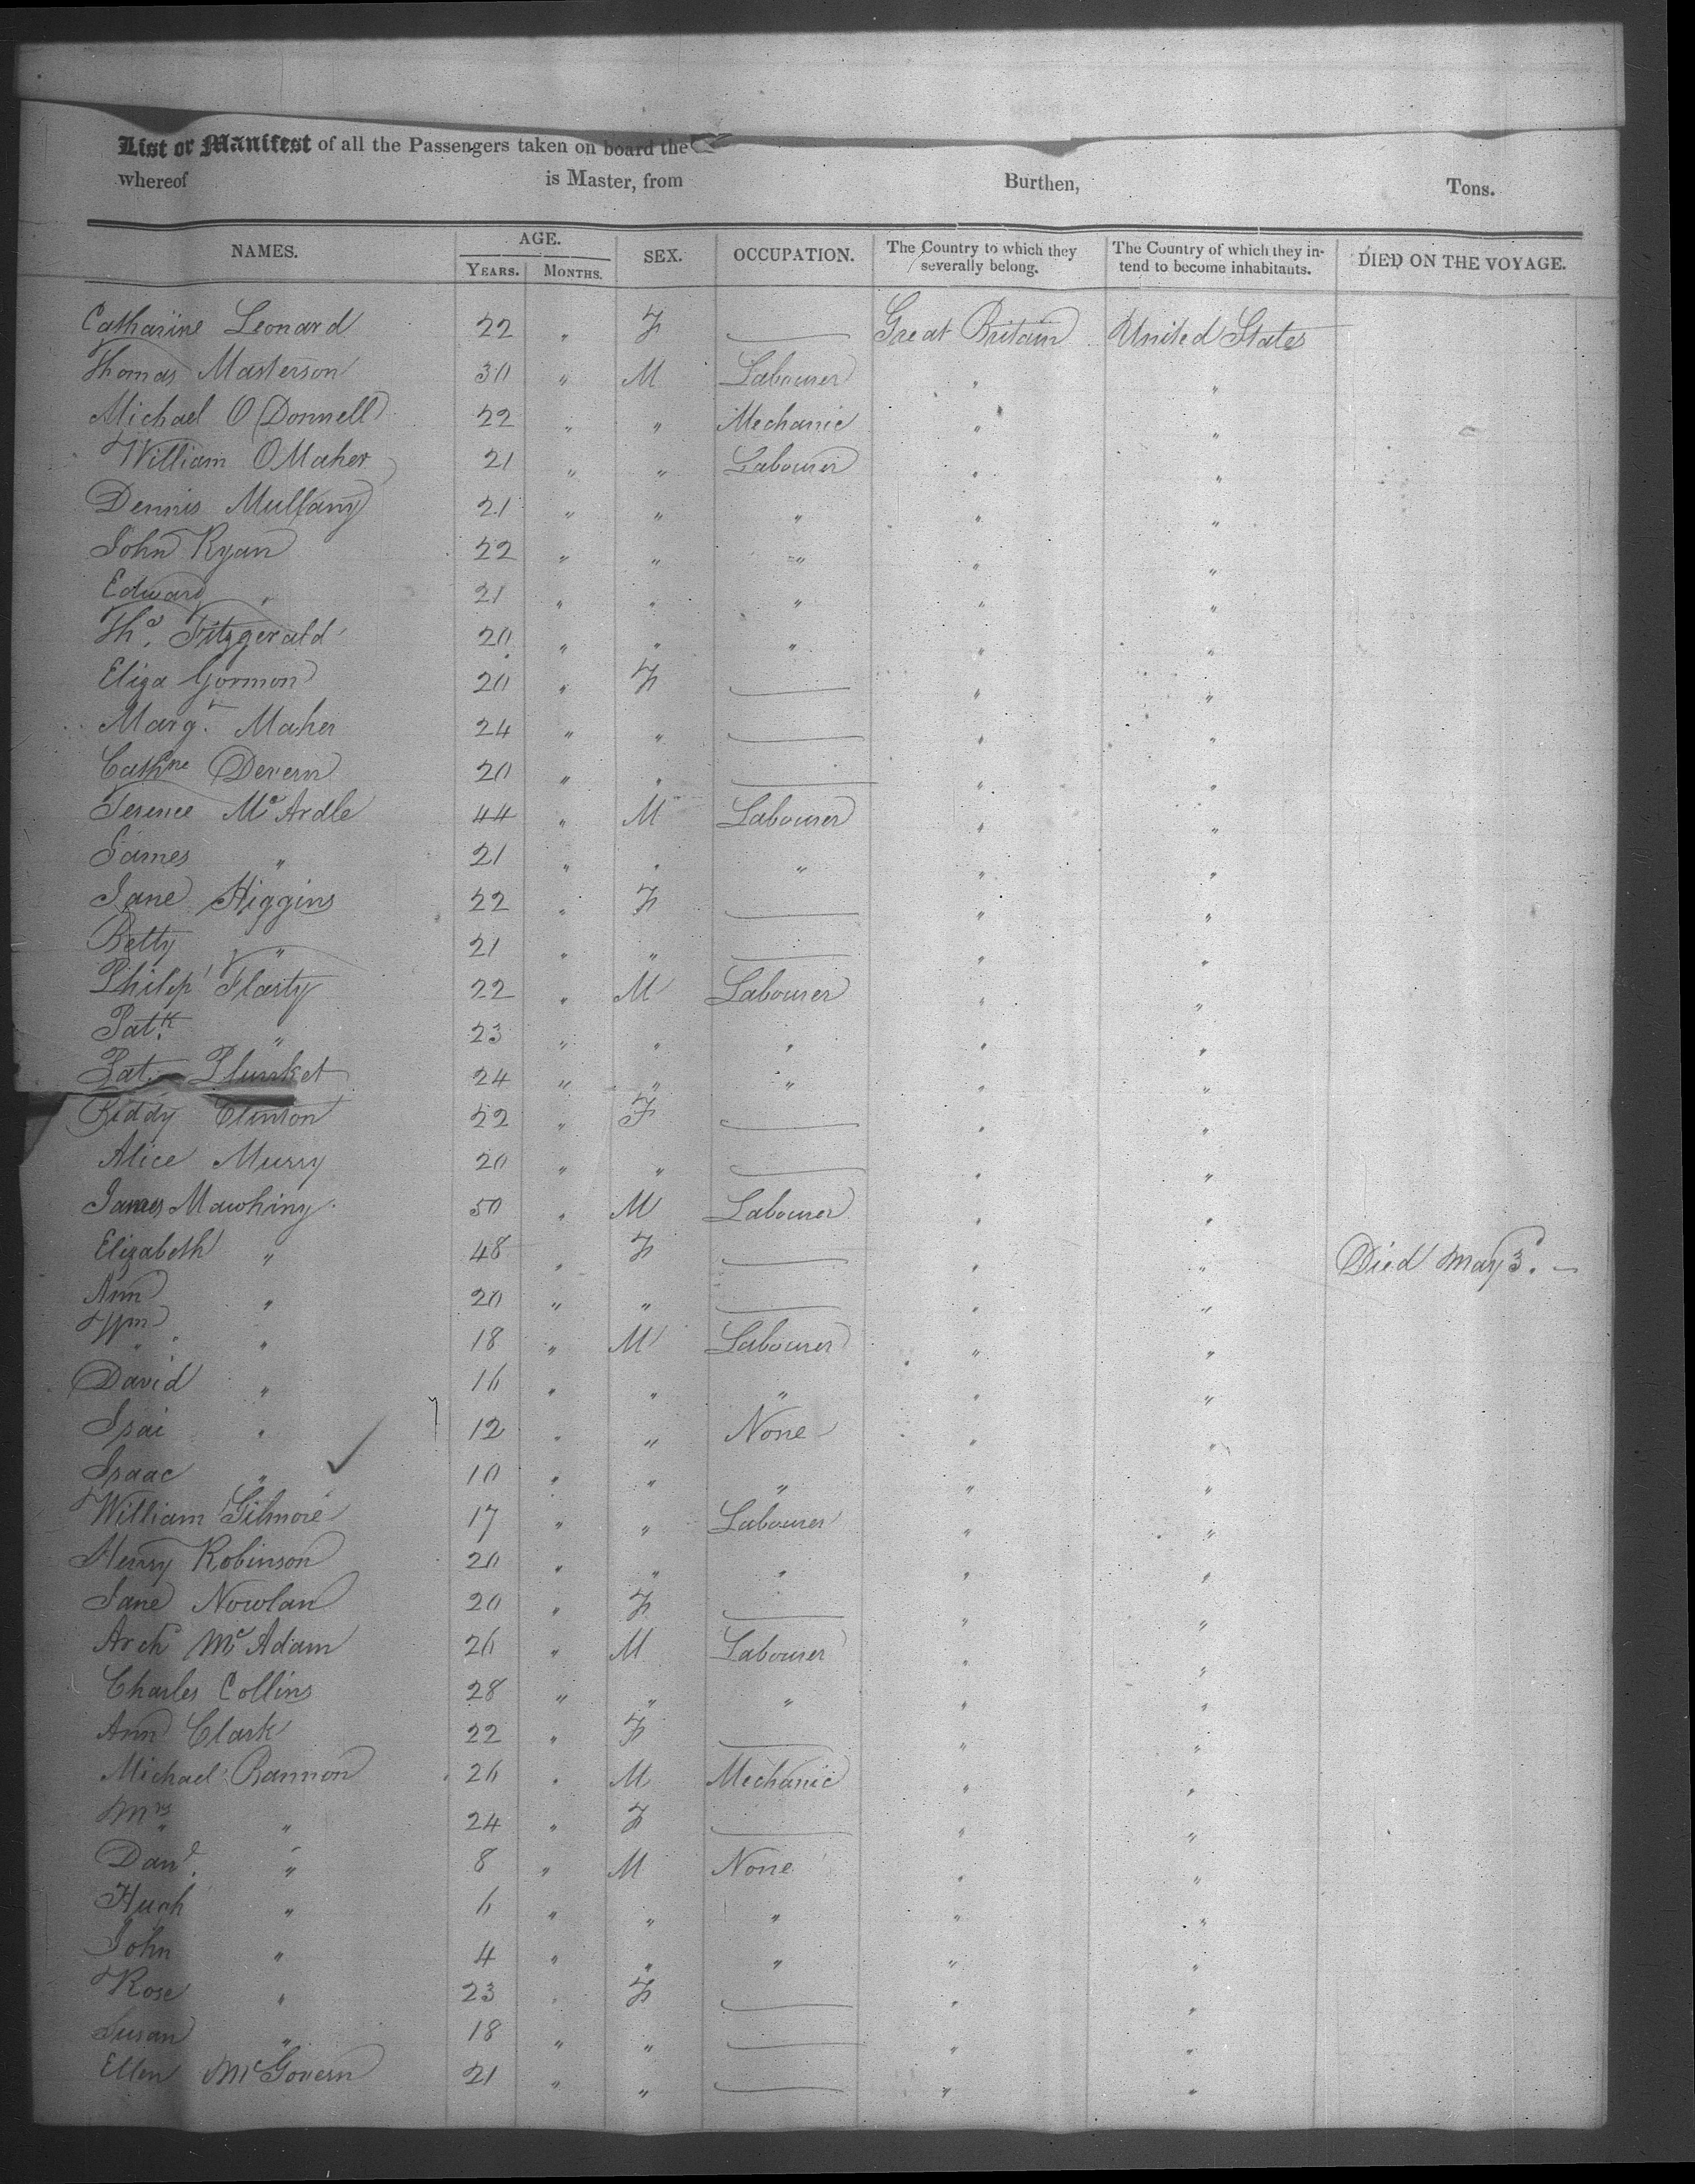 List or Manifest of all the Passengers taken on board the
whereof is Master, from Burthen, Tons.
NAMES. AGE. YEARS. MONTHS. SEX. OCCUPATION. The Country to which they severally belong. The Country of which they intend to become inhabitants. DIED ON THE VOYAGE.
Catharine Leonard 22 " F — Great Britain United States
Thomas Masterson 30 " M Labourer " "
Michael O Donnell 22 " " Mechanic " "
William O Maher 21 " " Labourer " "
Dennis Mullany 21 " " " " "
John Ryan 22 " " " " "
Edward " 21 " " " " "
Thos. Fitzgerald 20 " " " " "
Eliza Gormon 20 " F — " "
Margt. Maher 24 " " — " "
Cathne Devern 20 " " — " "
Terence Mc Ardle 44 " M Labourer " "
James " 21 " " " " "
Jane Higgins 22 " F — " "
Betty " 21 " " — " "
Philip Flarty 22 " M Labourer " "
Patk. " 23 " " " " "
Pat. Plunket 24 " " " " "
Biddy Clinton 22 " F — " "
Alice Murry 20 " " — " "
James Mawhiny 50 " M Labourer " "
Elizabeth " 48 " F — " " Died May 3. —
Ann " 20 " " — " "
Wm " 18 " M Labourer " "
David " 16 " " " " "
Isai " 12 " " None " "
Isaac " 10 " " " " "
William Gilmore 17 " " Labourer " "
Henry Robinson 20 " " " " "
Jane Nowlan 20 " F — " "
Archd Mc Adam 26 " M Labourer " "
Charles Collins 28 " " " " "
Ann Clark 22 " F — " "
Michael Bannon 26 " M Mechanic " "
Mrs " 24 " F — " "
Danl. " 8 " M None " "
Hugh " 6 " " " " "
John " 4 " " " " "
Rose " 23 " F — " "
Susan " 18 " " — " "
Ellen McGovern 21 " " — " "